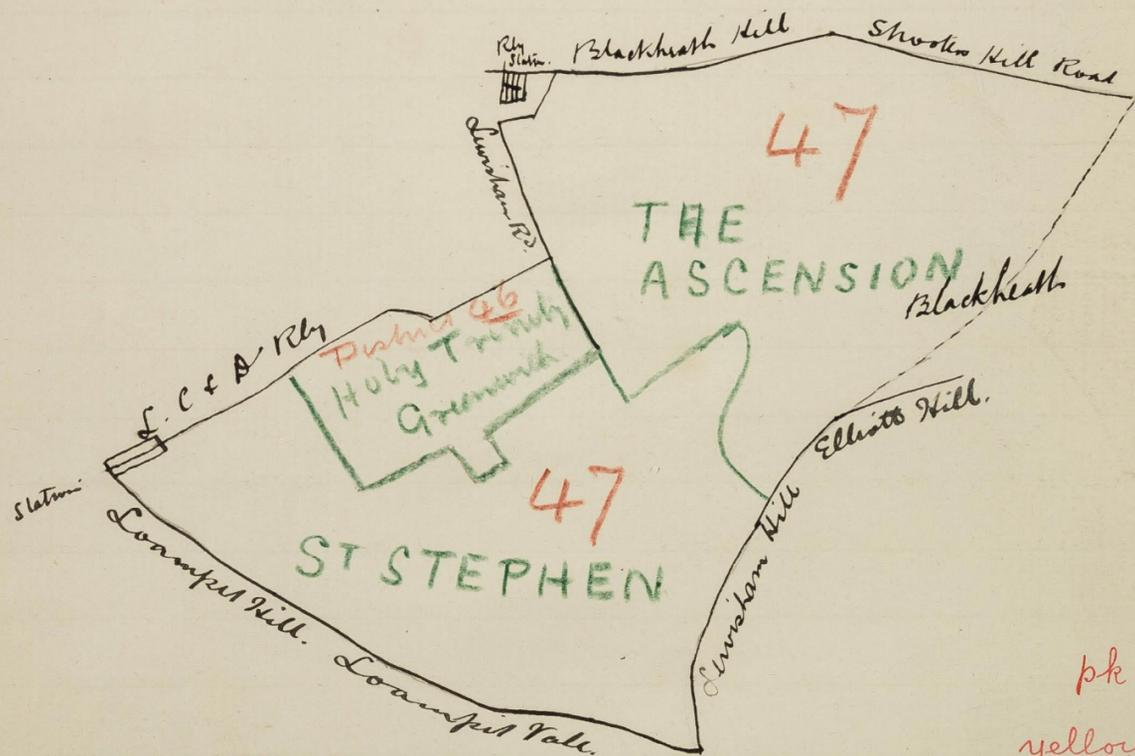 Rly
Statn.
Blackheath Hill
Shooters Hill Road
Lewisham Rd.
47
THE
ASCENSION
Blackheath
L. C & D Rly
District 46
Holy Trinity
Greenwich
Elliott Hill.
Station
47
ST STEPHEN
Loampit Hill.
Loampit Vale.
Lewisham Hill
pk
yellow